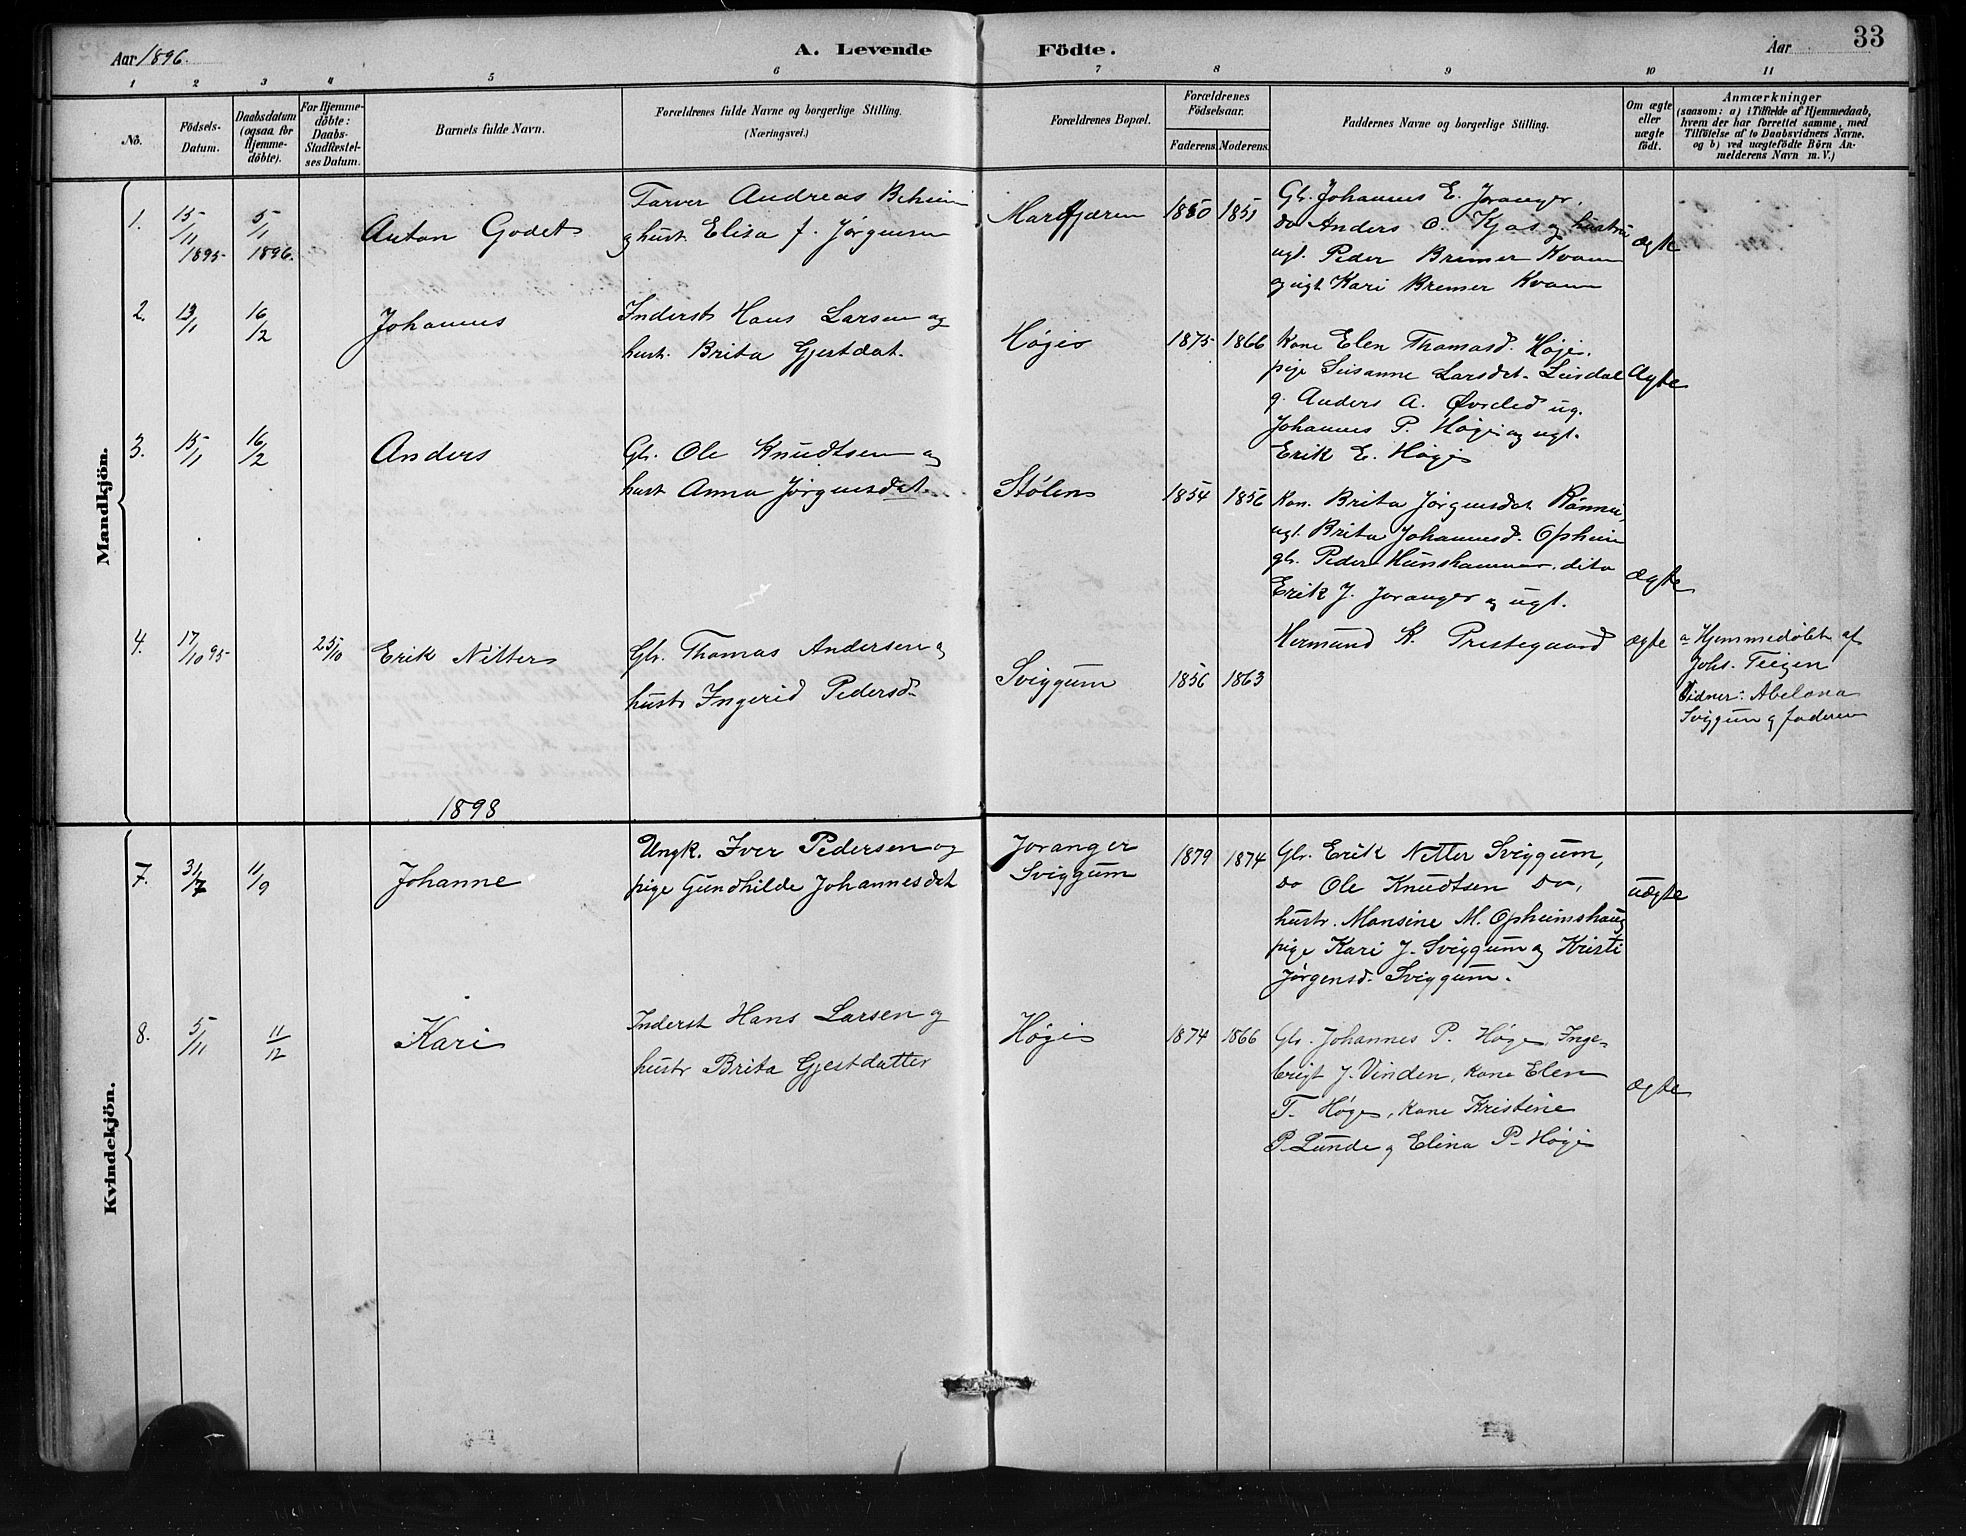 Aar 1896.
A. Levende Födte.
Aar
33
1 2 3 4 5 6 7 8 9 10 11
No.
Födsels-Datum.
Daabsdatum (ogsaa for Hjemme-döbte).
For Hjemme-döbte: Daabs-Stadfæstel-ses Datum.
Barnets fulde Navn.
Forældrenes fulde Navne og borgerlige Stilling. (Næringsvei.)
Forældrenes Bopæl.
Forældrenes Födselsaar.
Faderens. Moderens.
Faddernes Navne og borgerlige Stilling.
Om ægte eller uægte födt.
Anmærkninger
(saasom: a) i Tilfælde af Hjemmedaab,
hvem der har forrettet samme, med
Tilföielse af to Daabsvidners Navne,
og b) ved uægtefödte Börn An-
melderens Navn m. V.)
Mandkjön.
1. 15/11 1895 5/1 1896.
Anton Godet
Farver Andreas Beheim
g hust. Elisa f. Jørgensen
Marifjæren
1850 1851
Gb. Johannes E. Joranger,
do Anders O. Kjos og hustru
ugt. Peder Bremer Kvam
og ugt Kari Bremer Kvam
ægte
2. 13/1 16/2
Johannes
Inderst Hans Larsen og
hust. Brita Gjestdat.
Høgie
1875 1866
Kone Elen Thomasd. Høgi.
pige Susanne Larsdet. Lusdal
g. Anders A. Øvrelid ug.
Johannes P. Høgi og ugt.
Erik E. Høgi
Ægte
3. 15/1 16/2
Anders
Gb. Ole Knudtsen og
hust Anna Jørgensdat.
Stølen
1854 1856
Kon. Brita Jørgensdat Rønnei,
ugt. Brita Johannesd. Opheim
gb. Peder Hunshammer, dito
Erik J. Joranger og ugt.
Hermund K. Prestegaard
ægte
4. 17/10 95 25/10
Erik Nitter
Gb. Thomas Andersen og
hustr Ingerid Pedersd.
Sviggum
1856 1863
ægte
a Hjemmedøbt af
Johs. Teigen
Vidner: Abelona
Sviggum g faderen
1898
Kvindekjön.
7. 31/7 11/9
Johanne
Ungk. Iver Pedersen og
pige Gundhilde Johannesdet
Joranger
Sviggum
1879 1874
Gb. Erik Nitter Sviggum,
do Ole Knudtsen do,
hustr. Mansine M. Opheimshaug
pige Kari J. Sviggum og Kristi
Jørgensd. Sviggum.
uægte
8. 5/11 11/12
Kari
Inderst Hans Larsen og
hustr Brita Gjestdatter
Høgi
1874 1866
Gb. Johannes P. Høge, Inge-
brigt J. Vinden, Kone Elen
T. Høge, kone Kristine
P. Lunde og Elina P. Høgi
ægte